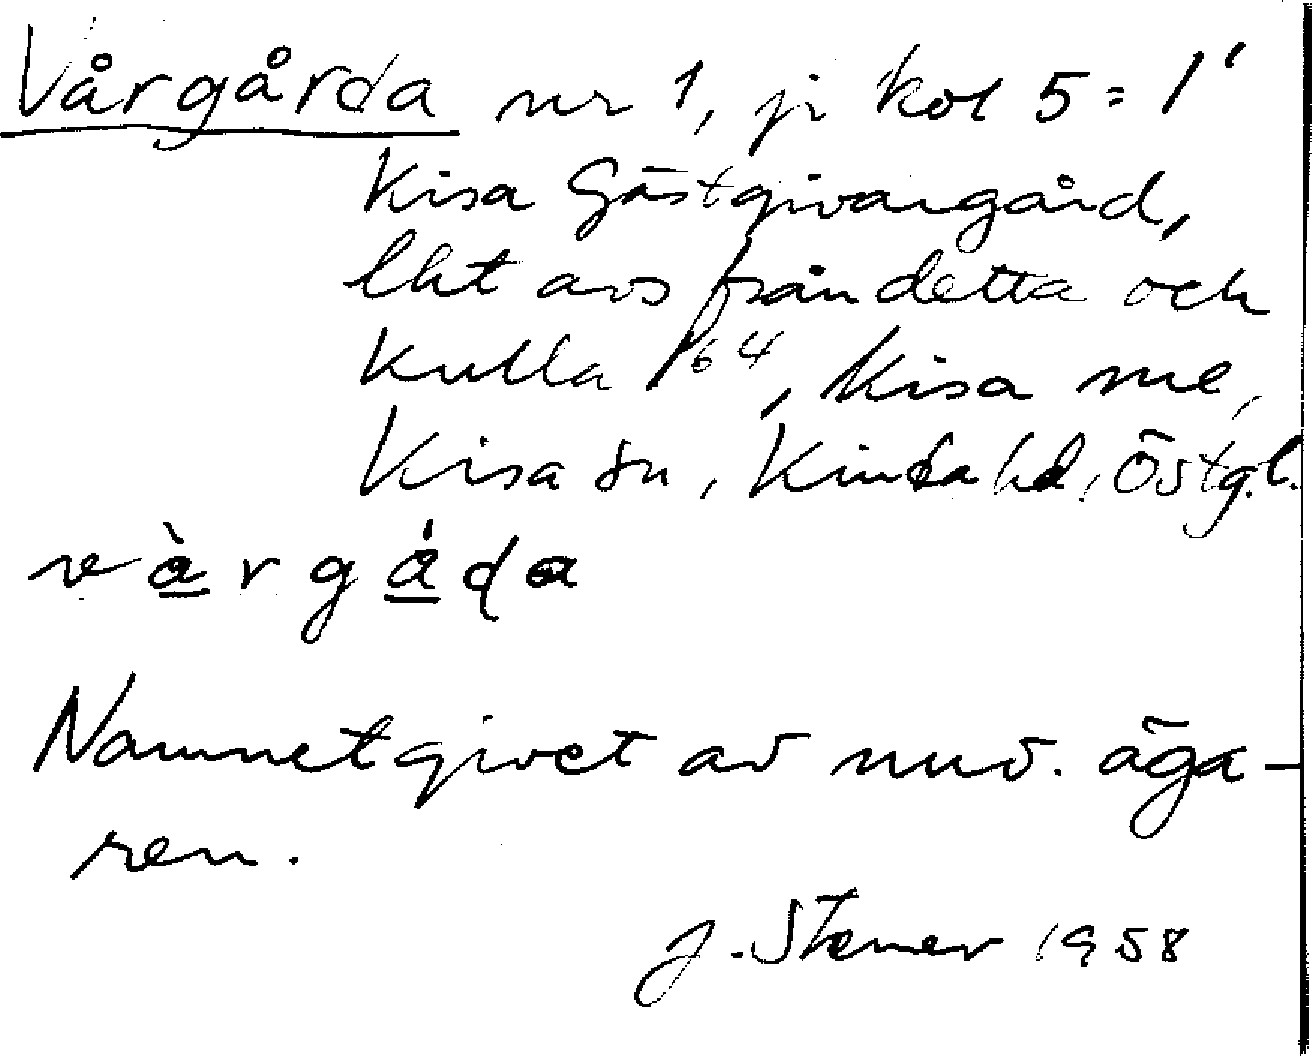 Vårgårda nr 1, jr kol 5 = 1'
Kisa Gästgivaregård,
lht avs från detta och
Kulla 1/64, Kisa mc,
Kisa sn, Kinda hd, Östg.l.
vàrgåda
Namnet givet av nuv. äga-
ren.
J. Stener 1958